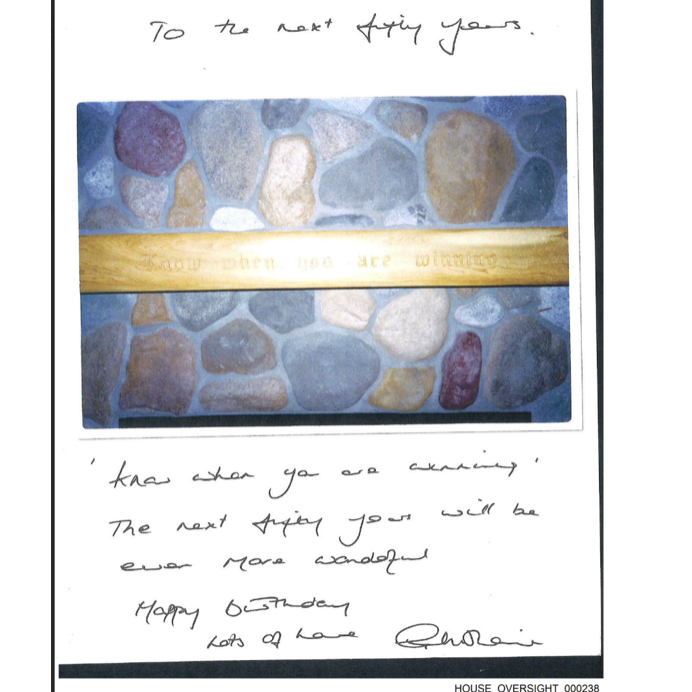 To the next fifty years.
Know when you are winning
'Know when you are winning'
The next fifty years will be
even more wonderful
Happy birthday
Lots of love
HOUSE_OVERSIGHT_000238